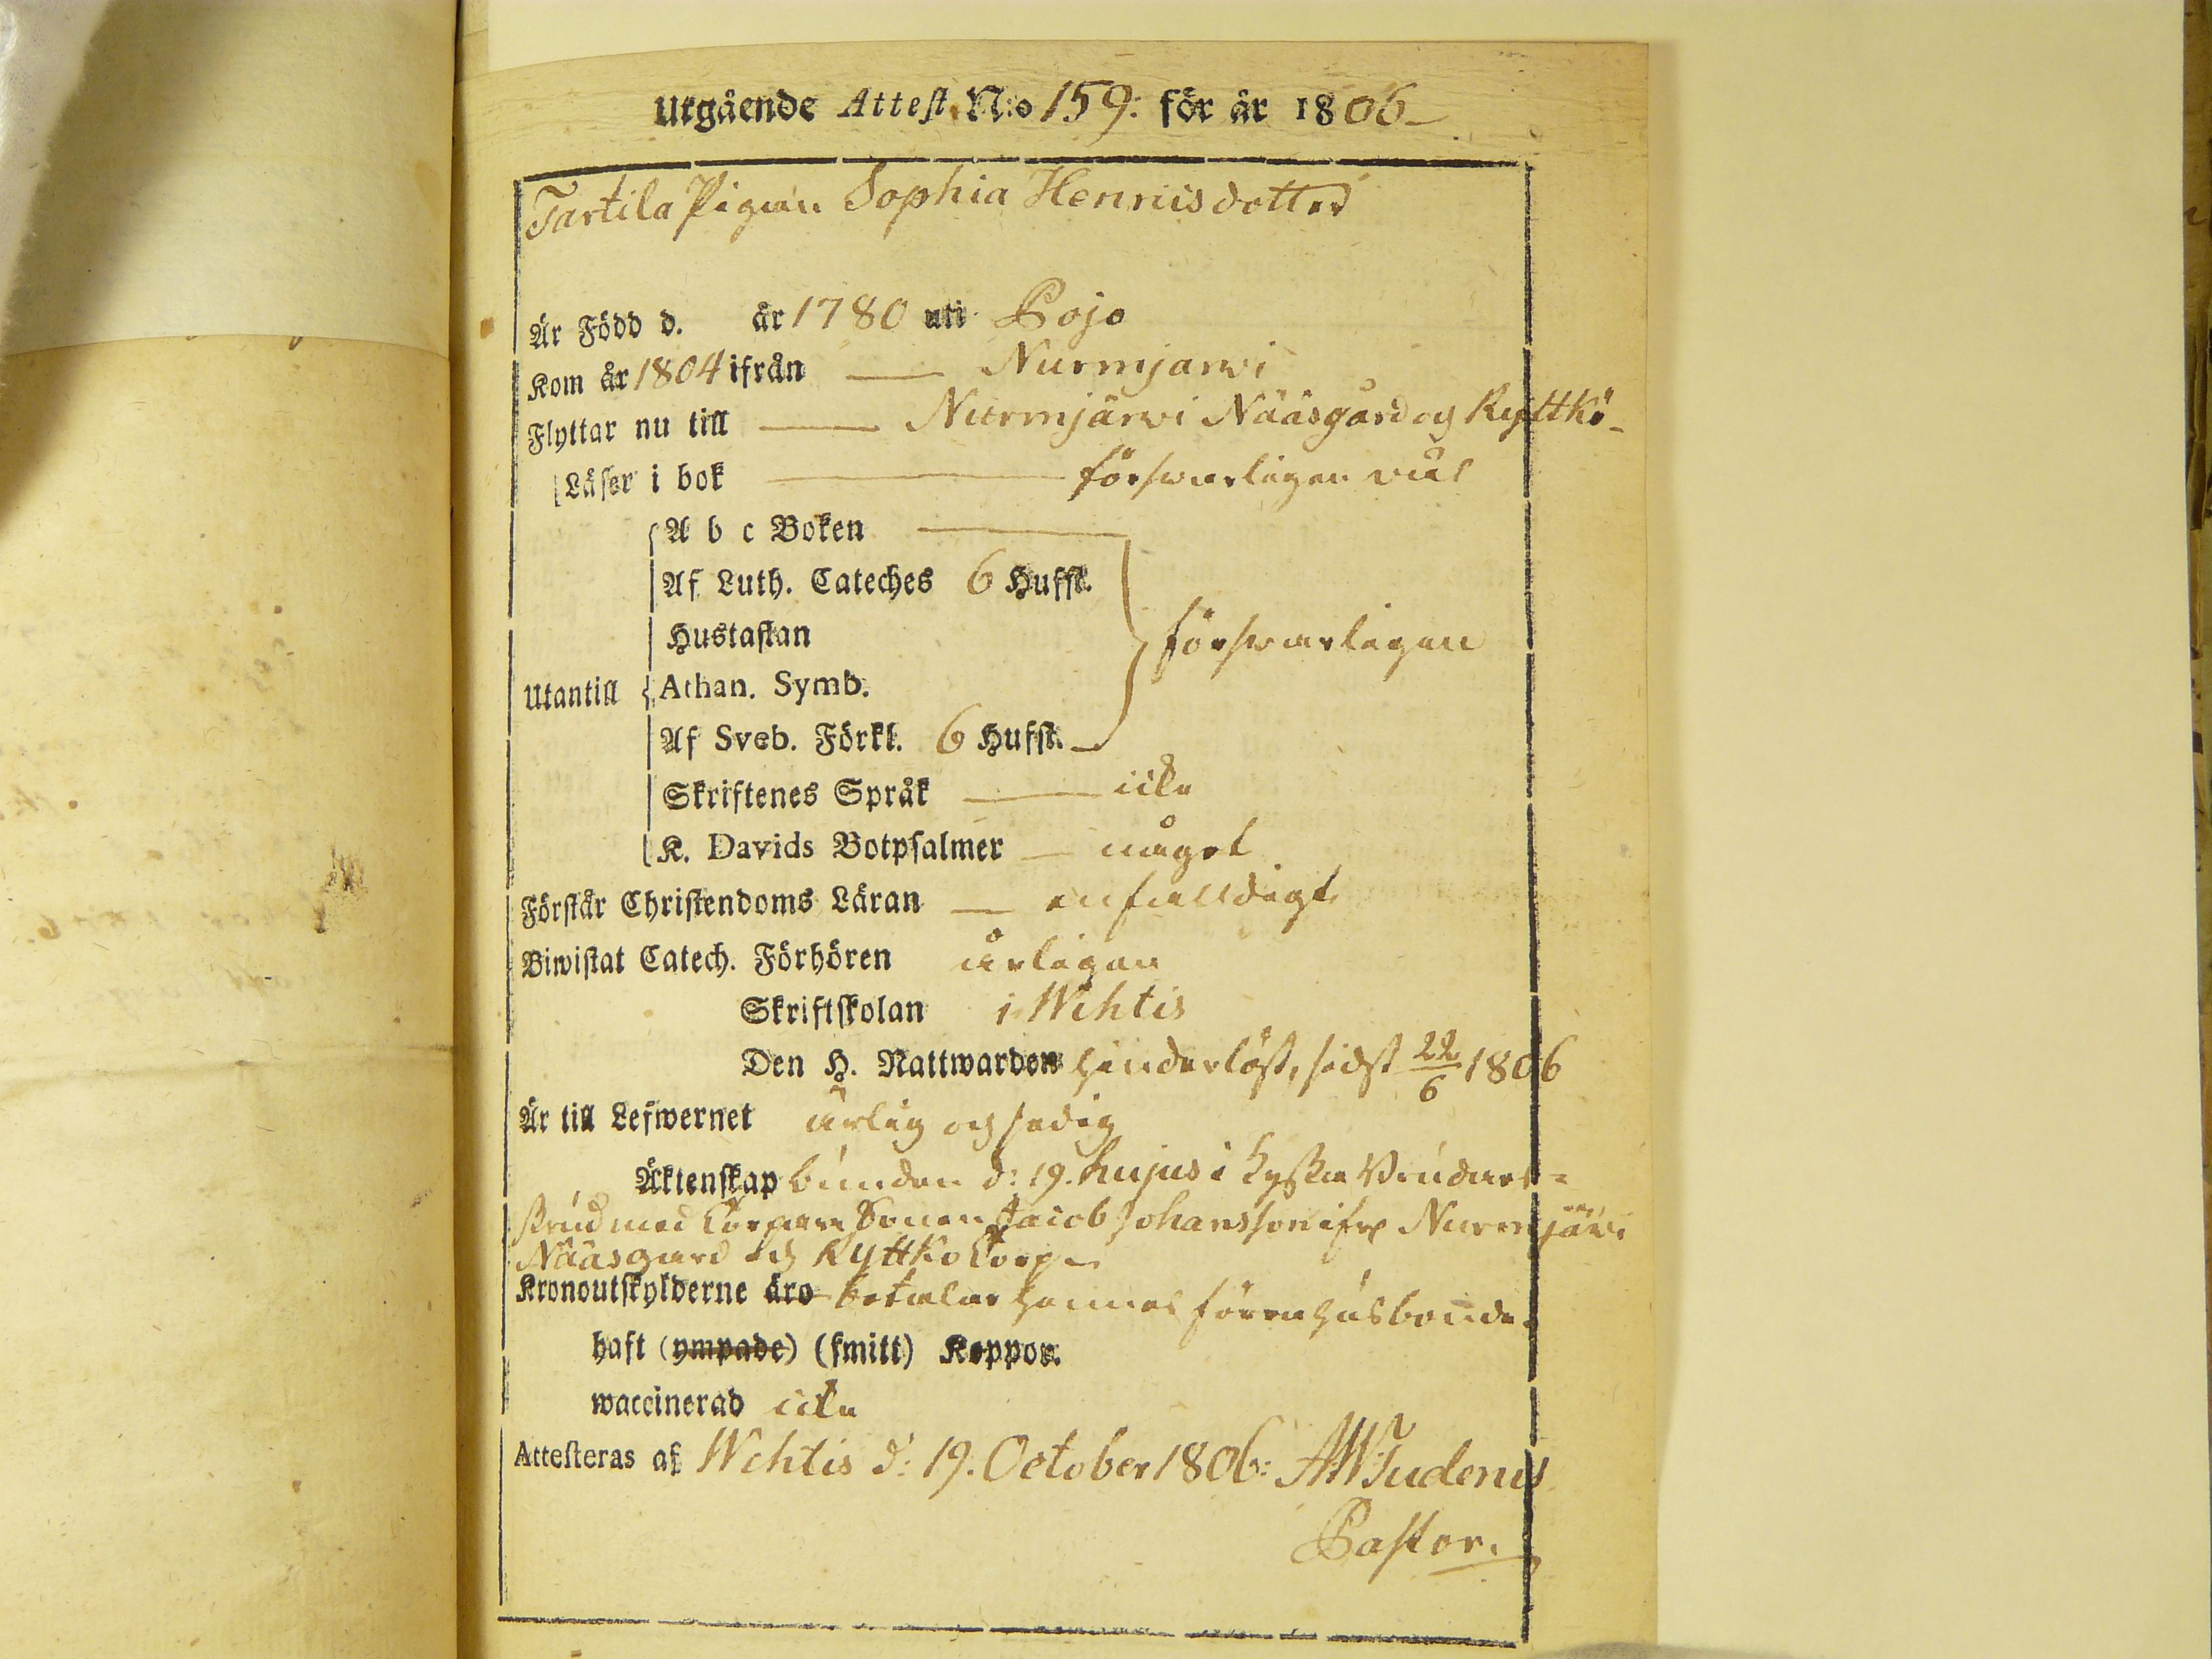 Utgående Attest. N:o 159: för år 1806
Tartila Pigan Sophia Henricsdotter
Är Född d. år 1780 uti Pojo
Kom år 1804 ifrån — Nurmjarvi
Flyttar nu till — Nurmjärvi Nääsgård och Kyttkö
Läser i bok — försvarligen väl
A b c Boken —
Af Luth. Cateches 6 Huffst.
Hustaflan
försvarligen
Utantill Athan. Symb.
Af Sveb. Förkl. 6 Hufst.
Skriftenes Språk — icke
K. Davids Botpsalmer — något
Förstår Christendoms Läran — enfalldigt
Biwistat Catech. Förhören årligen
Skriftskolan i Wihtis
Den H. Nattwarden hinderlöst, sidst 22/6 1806
Är till Lefwernet ärlig och sedig
Äktenskap bunden d: 19. hujus i
med Torpare Sonen Jacob Johansson ifrån Nurmjärvi
Nääsgård och Kyttkö Torp
Kronoutskylderne äro betalar hennes förra husbonde
haft (ympade) (smitt) Koppor.
waccinerad icke
Attesteras af Wihtis d: 19. October 1806: AWTudenus
Pastor.